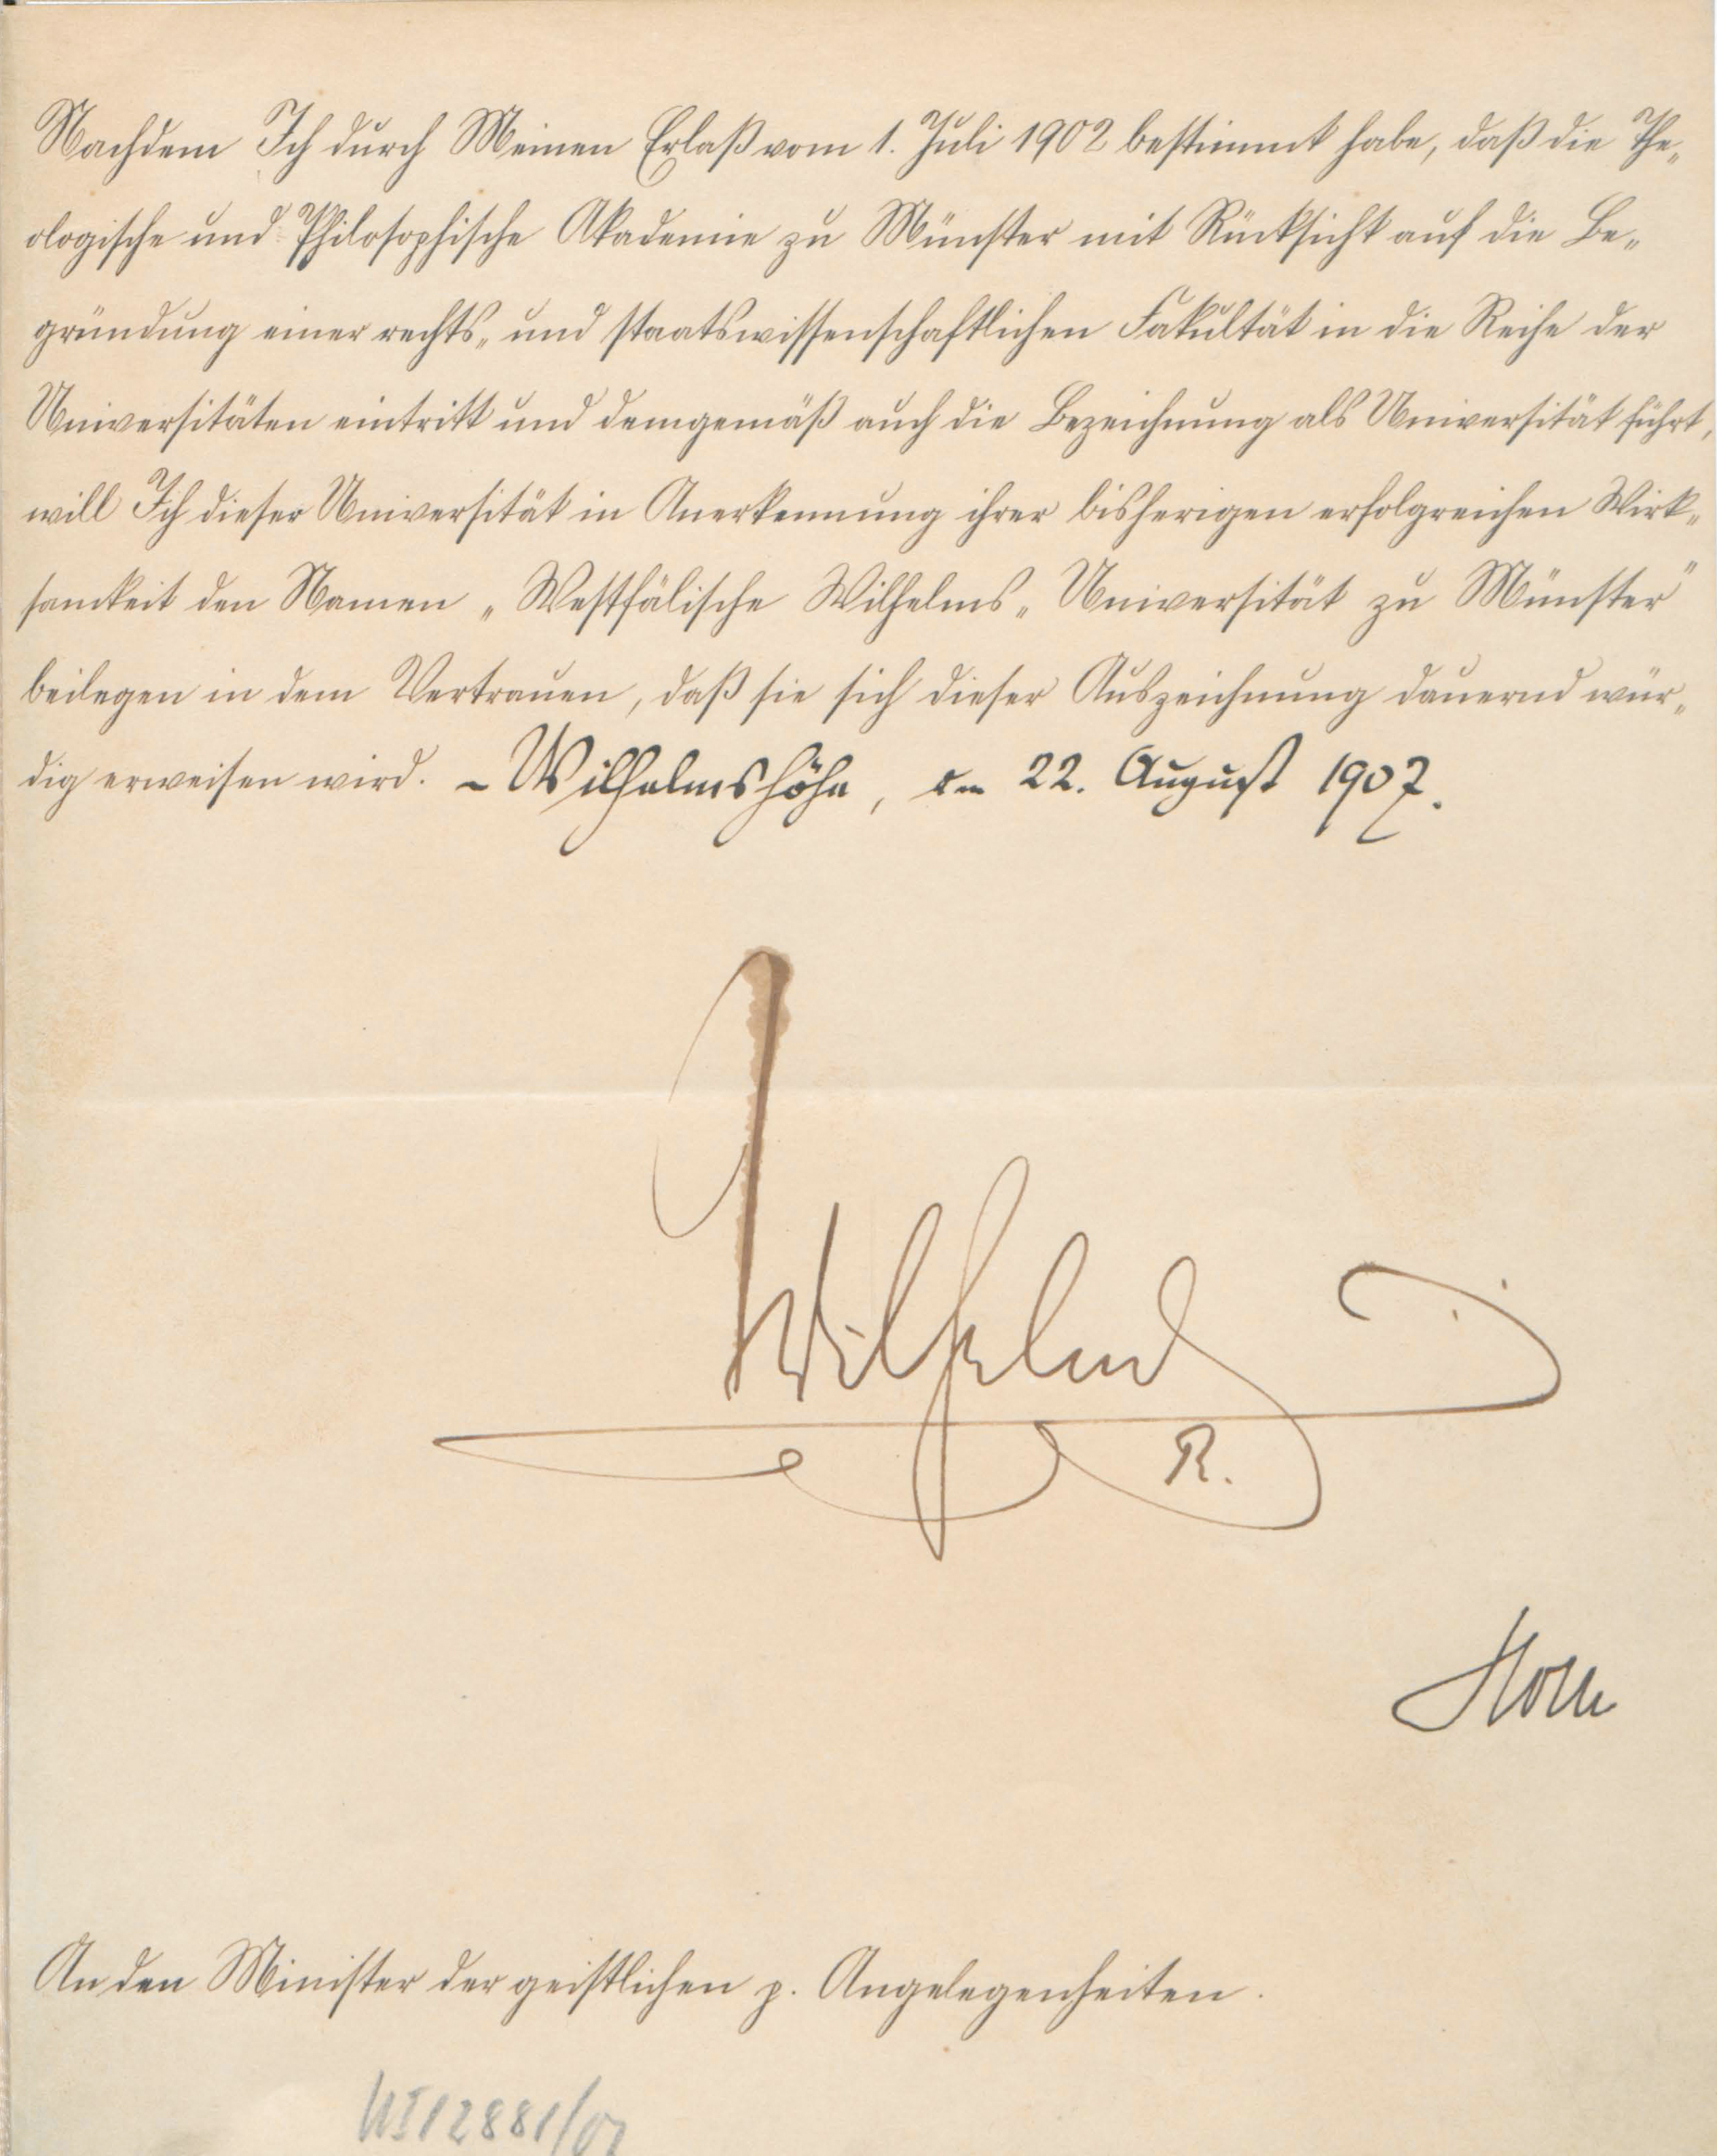 Nachdem Ich durch Meinen Erlaß vom 1. Juli 1902 bestimmt habe, daß die The-
ologische und Philosophische Akademie zu Münster mit Rücksicht auf die Be-
gründung einer rechts- und staatswissenschaftlichen Fakultät in die Reihe der
Universitäten eintritt und demgemäß auch die Bezeichnung als Universität führt,
will Ich dieser Universität in Anerkennung ihrer bisherigen erfolgreichen Wirk-
samkeit den Namen „Westfälische Wilhelms-Universität zu Münster"
beilegen in dem Vertrauen, daß sie sich dieser Auszeichnung dauernd wür-
dig erweisen wird. - Wilhelmshöhe, den 22. August 1907.
Wilhelm
R.
Holle
An den Minister der geistlichen p. Angelegenheiten.
UI 12881/07